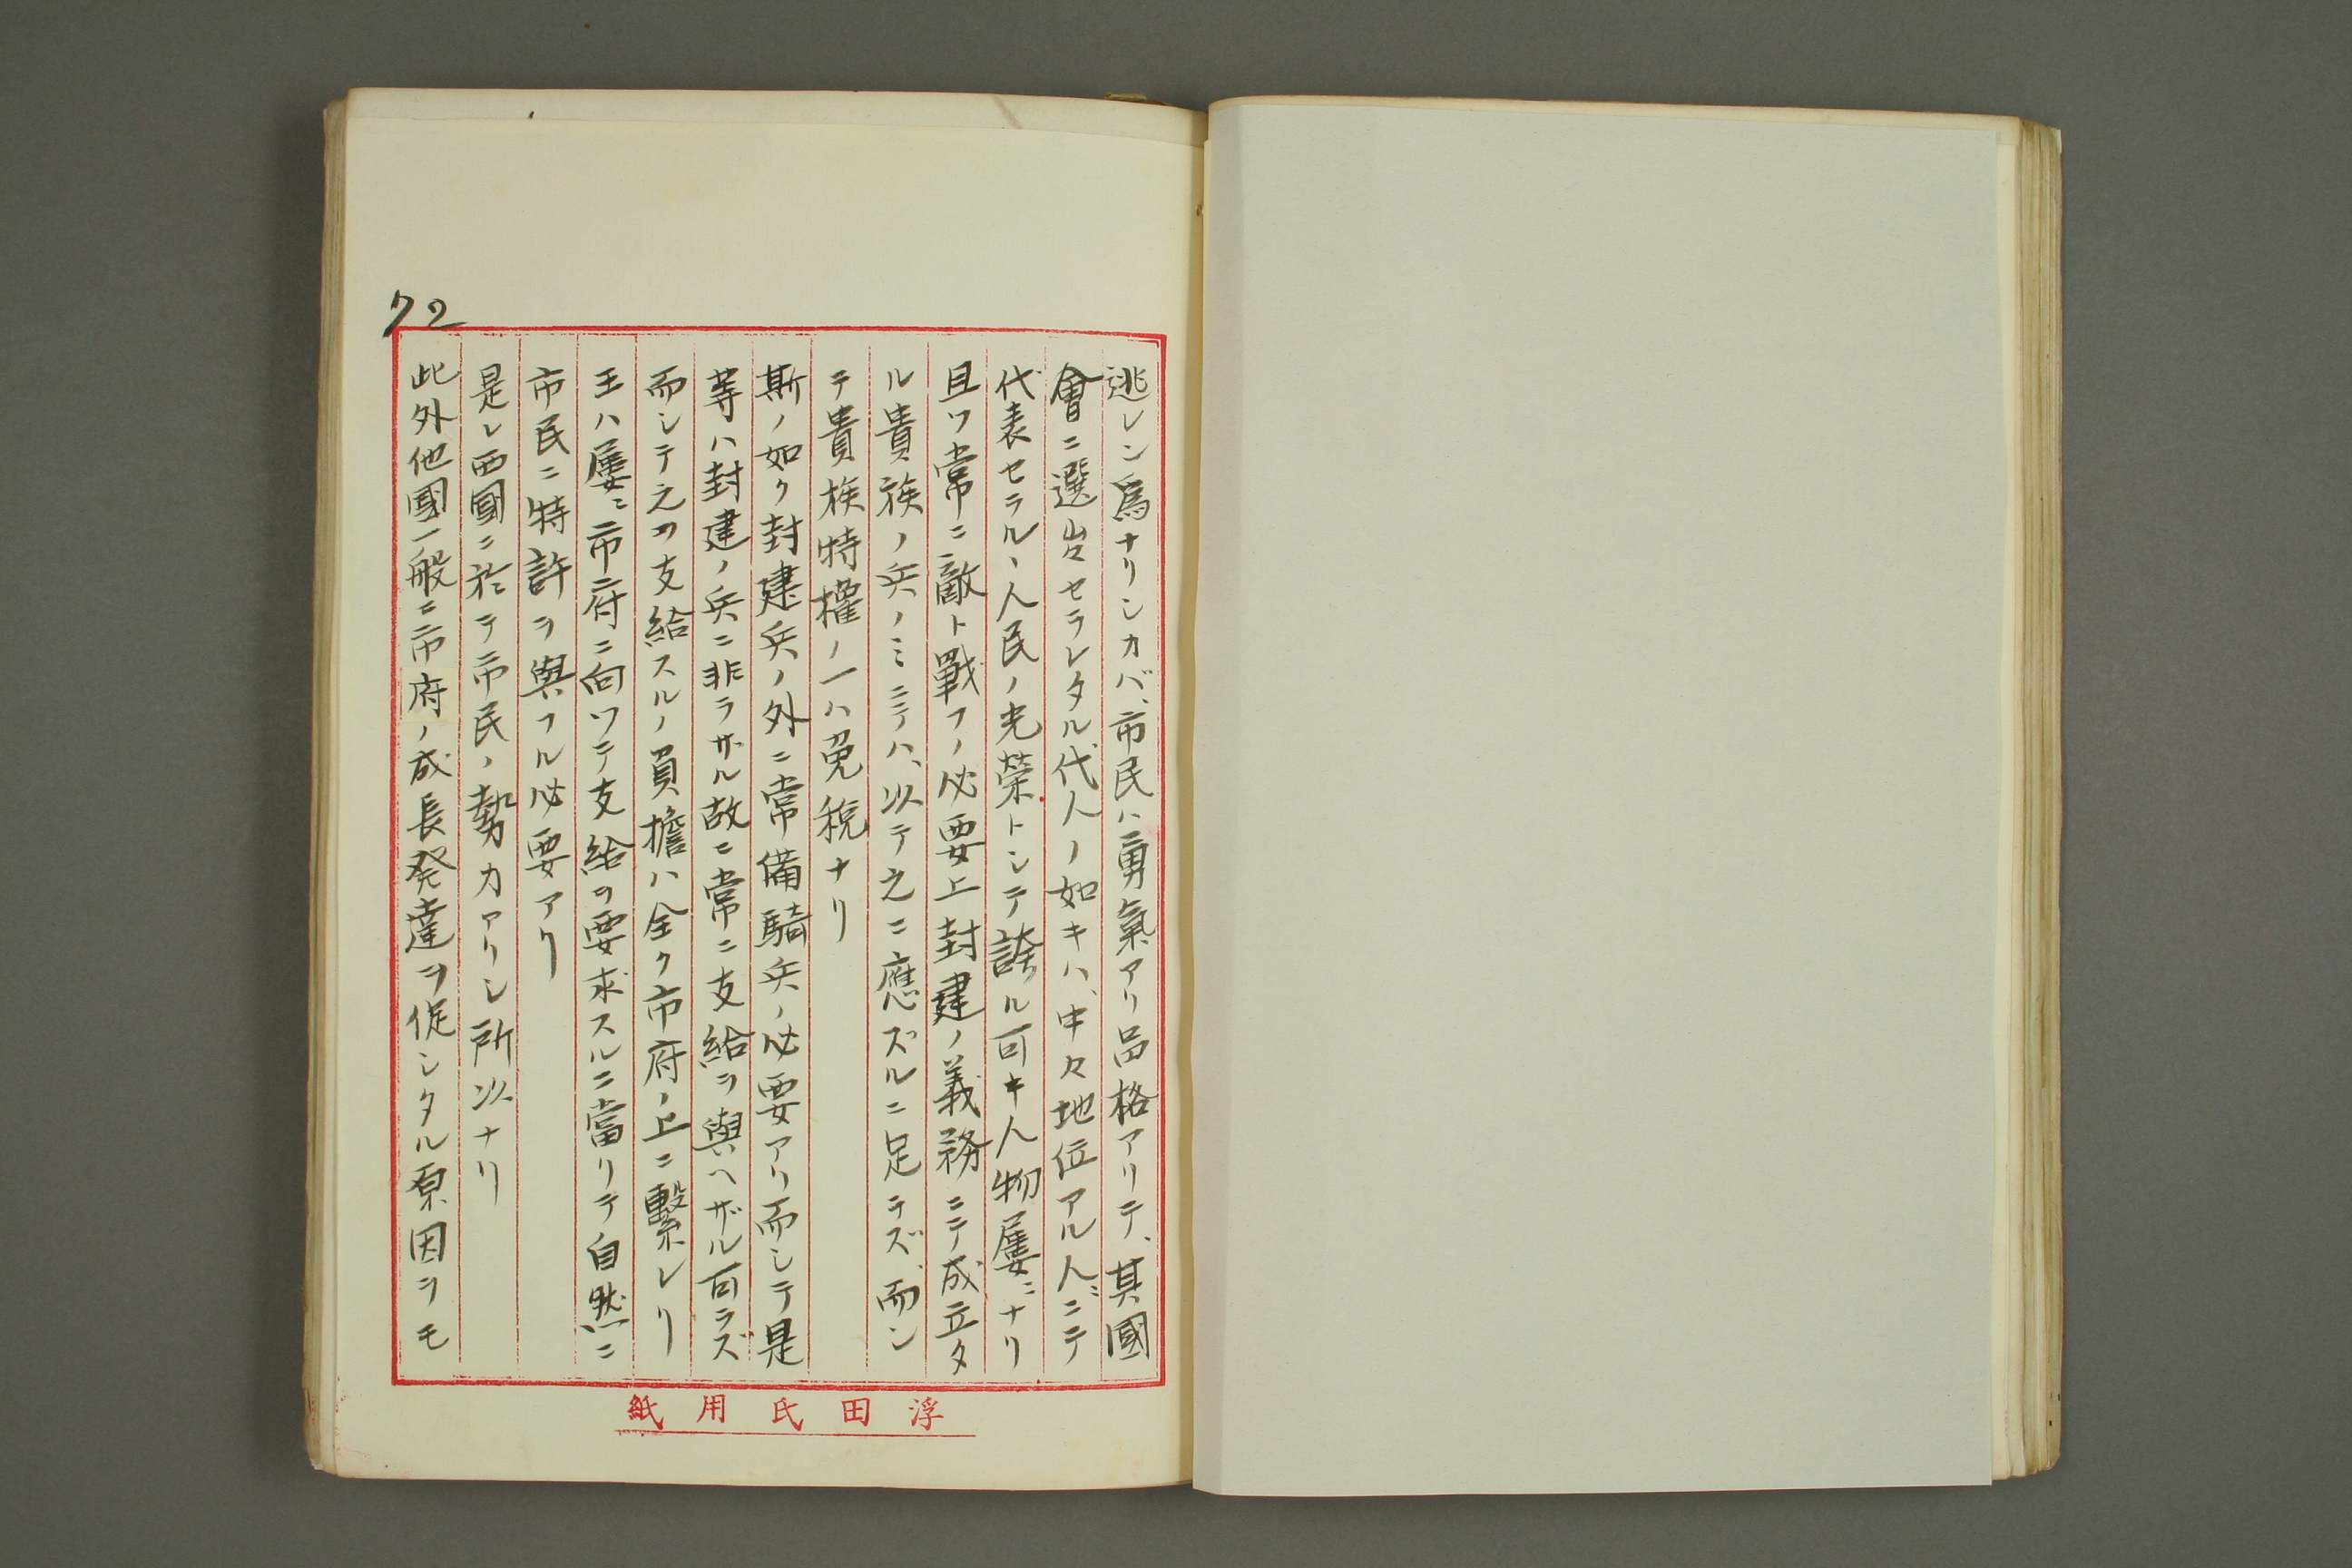 72
逃レン爲ナリシカバ、市民ハ勇氣アリ品格アリテ、其國
會ニ選出セラレタル代人ノ如キハ、中々地位アル人ニテ
代表セラルヽ人民ノ光榮トシテ誇ル可キ人物屢〻ナリ
且ツ常ニ敵ト戰フノ必要上封建ノ義務ニテ成立タ
ル貴族ノ兵ノミニテハ、以テ之ニ應ズルニ足ラズ、而シ
テ貴族特權ノ一ハ免税ナリ
斯ノ如ク封建兵ノ外ニ常備騎兵ノ必要アリ而シテ是
等ハ封建ノ兵ニ非ラザル故ニ常ニ支給ヲ與ヘザル可ラズ
而シテ之ヲ支給スルノ負擔ハ全ク市府ノ上ニ繫レリ
王ハ屢〻市府ニ向ツテ支給ヲ要求スルニ當リテ自然ニ
市民ニ特許ヲ與フル必要アリ
是レ西國ニ於テ市民ノ勢力アリシ所以ナリ
此外他國一般ニ市府ノ成長発達ヲ促シタル原因ヲモ
浮田氏用紙